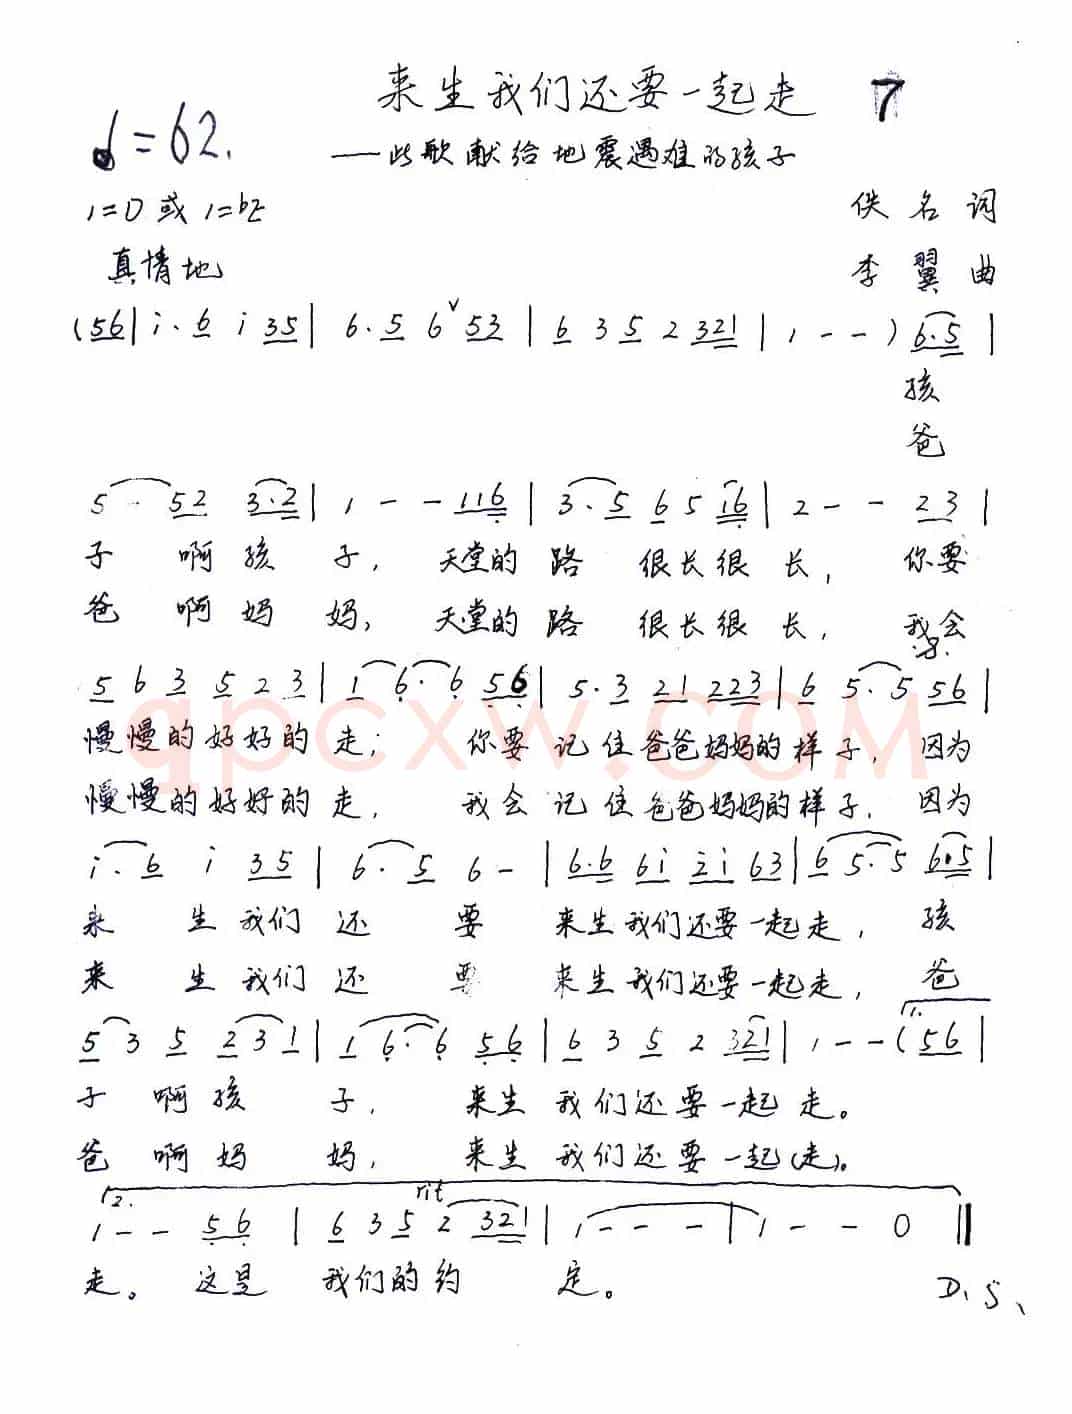 来生我们还要一起走 7
♩=62.
——此歌献给地震遇难的孩子
1=D 或 1=bE
佚名词
真情地
李翼曲
(56| i·6 i 35| 6·5 6ˇ53 | 6 3 5 2 321 | 1 - - ) 6·5 |
孩
爸
5 · 52 3·2 | 1 - - 116 | 3·5 6 5 16 | 2 - - 23 |
子 啊孩 子, 天堂的 路 很长很 长, 你要
爸 啊妈 妈, 天堂的 路 很长很 长, 我会
5 6 3 5 2 3 | 1 6·6 56 | 5·3 21 223 | 6 5·5 56 |
慢慢的好好的 走; 你要 记住爸爸妈妈的样子, 因为
慢慢的好好的 走, 我会 记住爸爸妈妈的样子, 因为
i·6 i 35 | 6·5 6 - | 6·6 6i 2i 63 | 6 5·5 6·5 |
来 生我们 还 要 来生我们还要一起走, 孩
来 生我们 还 要 来生我们还要一起走, 爸
1.
5 3 5 2 3 1 | 1 6·6 56 | 6 3 5 2 321 | 1 - - (56 |
子 啊孩 子, 来生 我们还要一起 走。
爸 啊妈 妈, 来生 我们还要一起(走)。
2. rit
1 - - 56 | 6 3 5 2 321 | 1 - - - | 1 - - 0 ‖
走。 这是 我们的约 定。
D.S.
qpcxw.COM